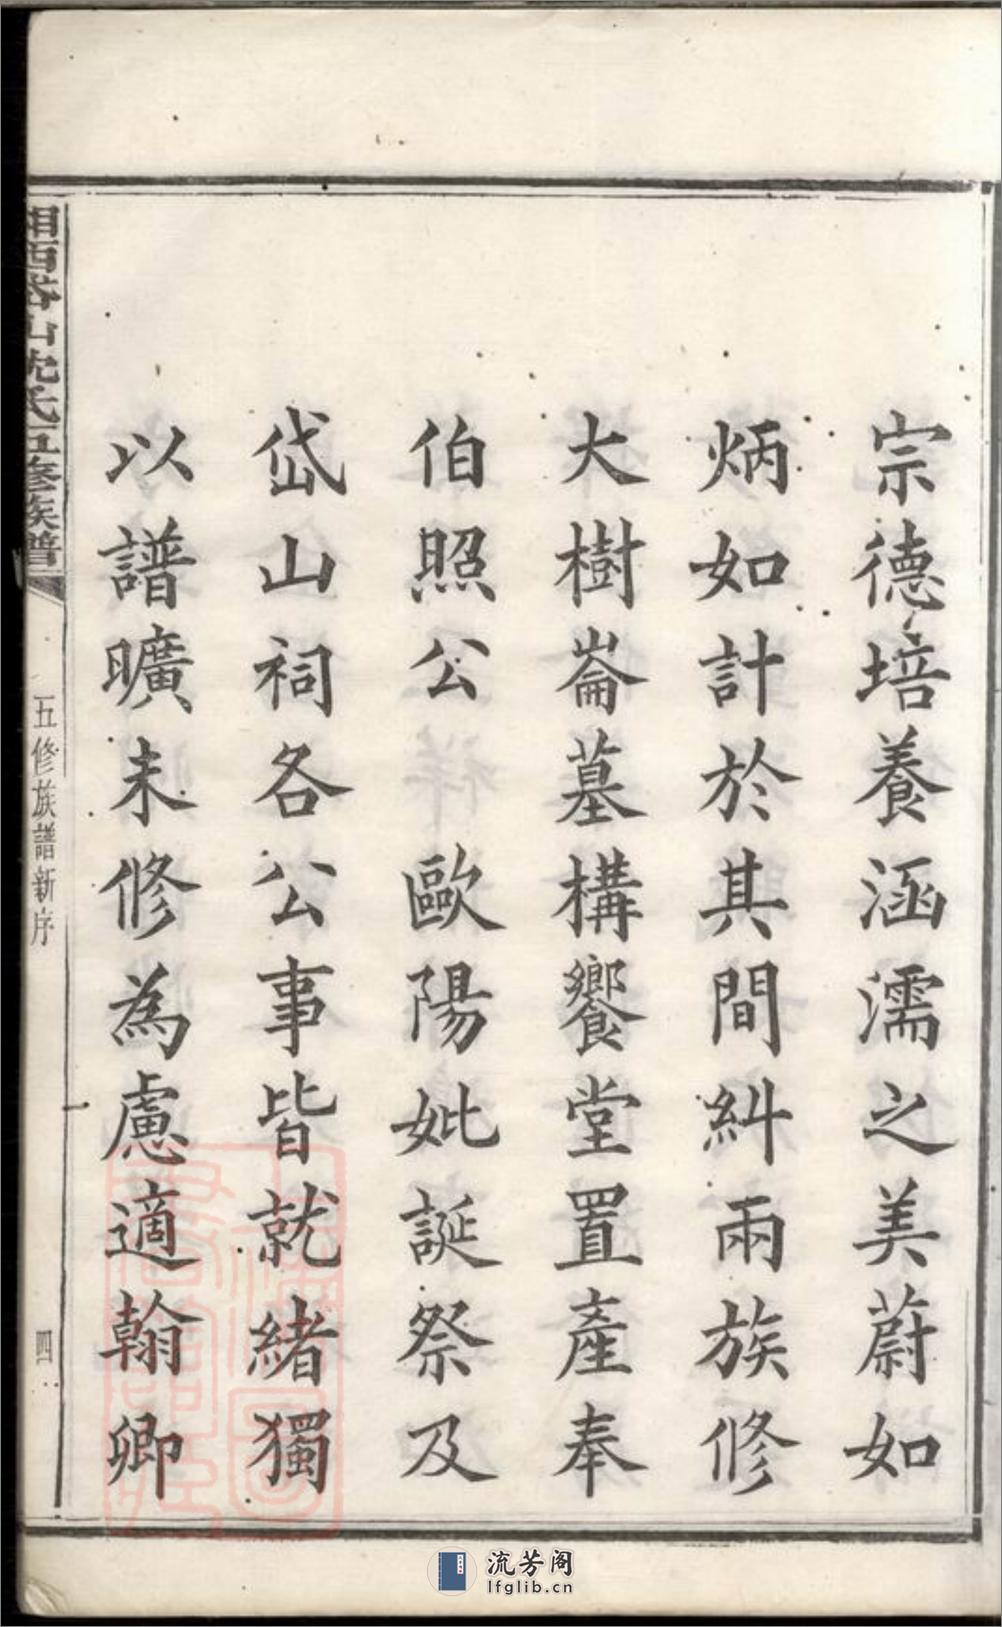 宗德培養涵濡之美蔚如
炳如計於其間糾兩族修
大樹崙墓構饗堂置產奉
伯照公 歐陽妣誕祭及
岱山祠各公事皆就緒獨
以譜曠未修為慮適翰卿
湘西岱山沈氏五修族譜
五修族譜新序
四
流芳阁
lfglib.cn